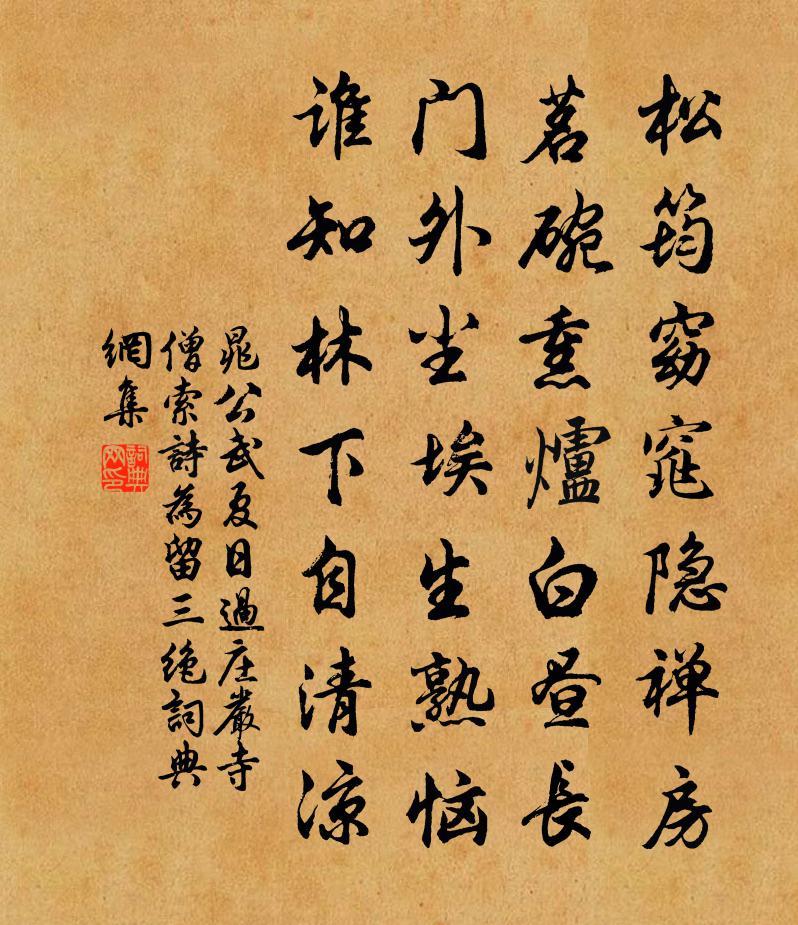 松筠窈窕隐禅房
茗碗熏爐白昼長
门外尘埃生熟恼
谁知林下自清凉
晁公武夏日過庄嚴寺
僧索詩為留三绝詞典
網集
詞典網印